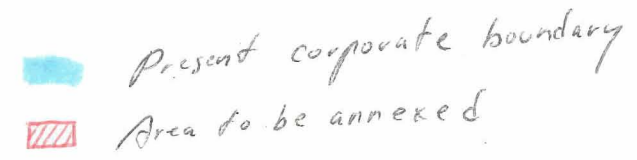 Present corporate boundary
Area to be annexed